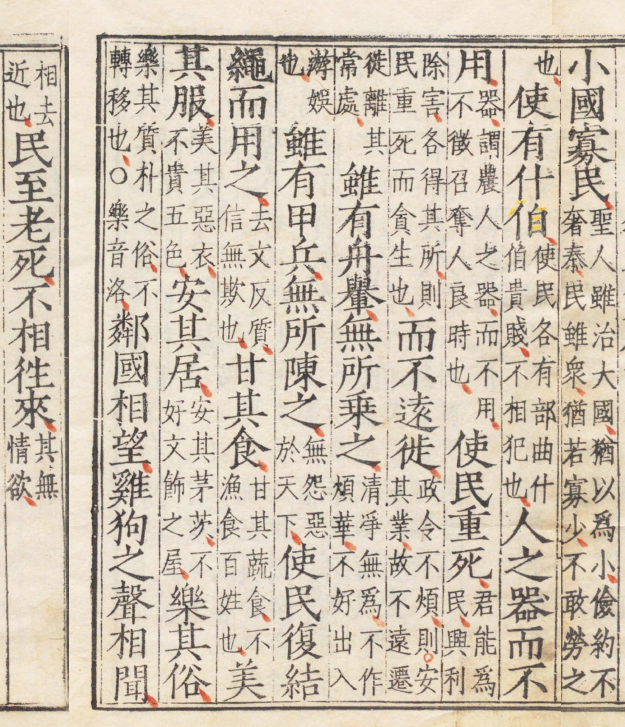 小國寡民聖人雖治大國猶以爲小儉約不奢泰民雖衆猶若寡少不敢勞之
也使有什伯使民各有部曲什伯貴賤不相犯也人之器而不
用器謂農人之器而不用不徵召奪人良時也使民重死君能爲民興利
除害各得其所則民重死而貪生也而不遠徙政令不煩則安其業故不遠遷
徙離其常處雖有舟轝無所乗之清淨無爲不作煩華不好出入
游娛也雖有甲兵無所陳之無怨惡於天下使民復結
繩而用之去文反質信無欺也甘其食甘其蔬食不漁食百姓也美
其服美其惡衣不貴五色安其居安其茅茨不好文飾之屋樂其俗
樂其質朴之俗不轉移也○樂音洛鄰國相望雞狗之聲相聞
相去近也民至老死不相徃來其無情欲